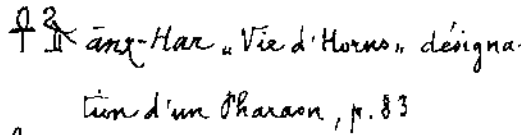 𓋹 ānχ-Har „Vie d'Horus„ désigna-
tion d'un Pharaon, p. 83